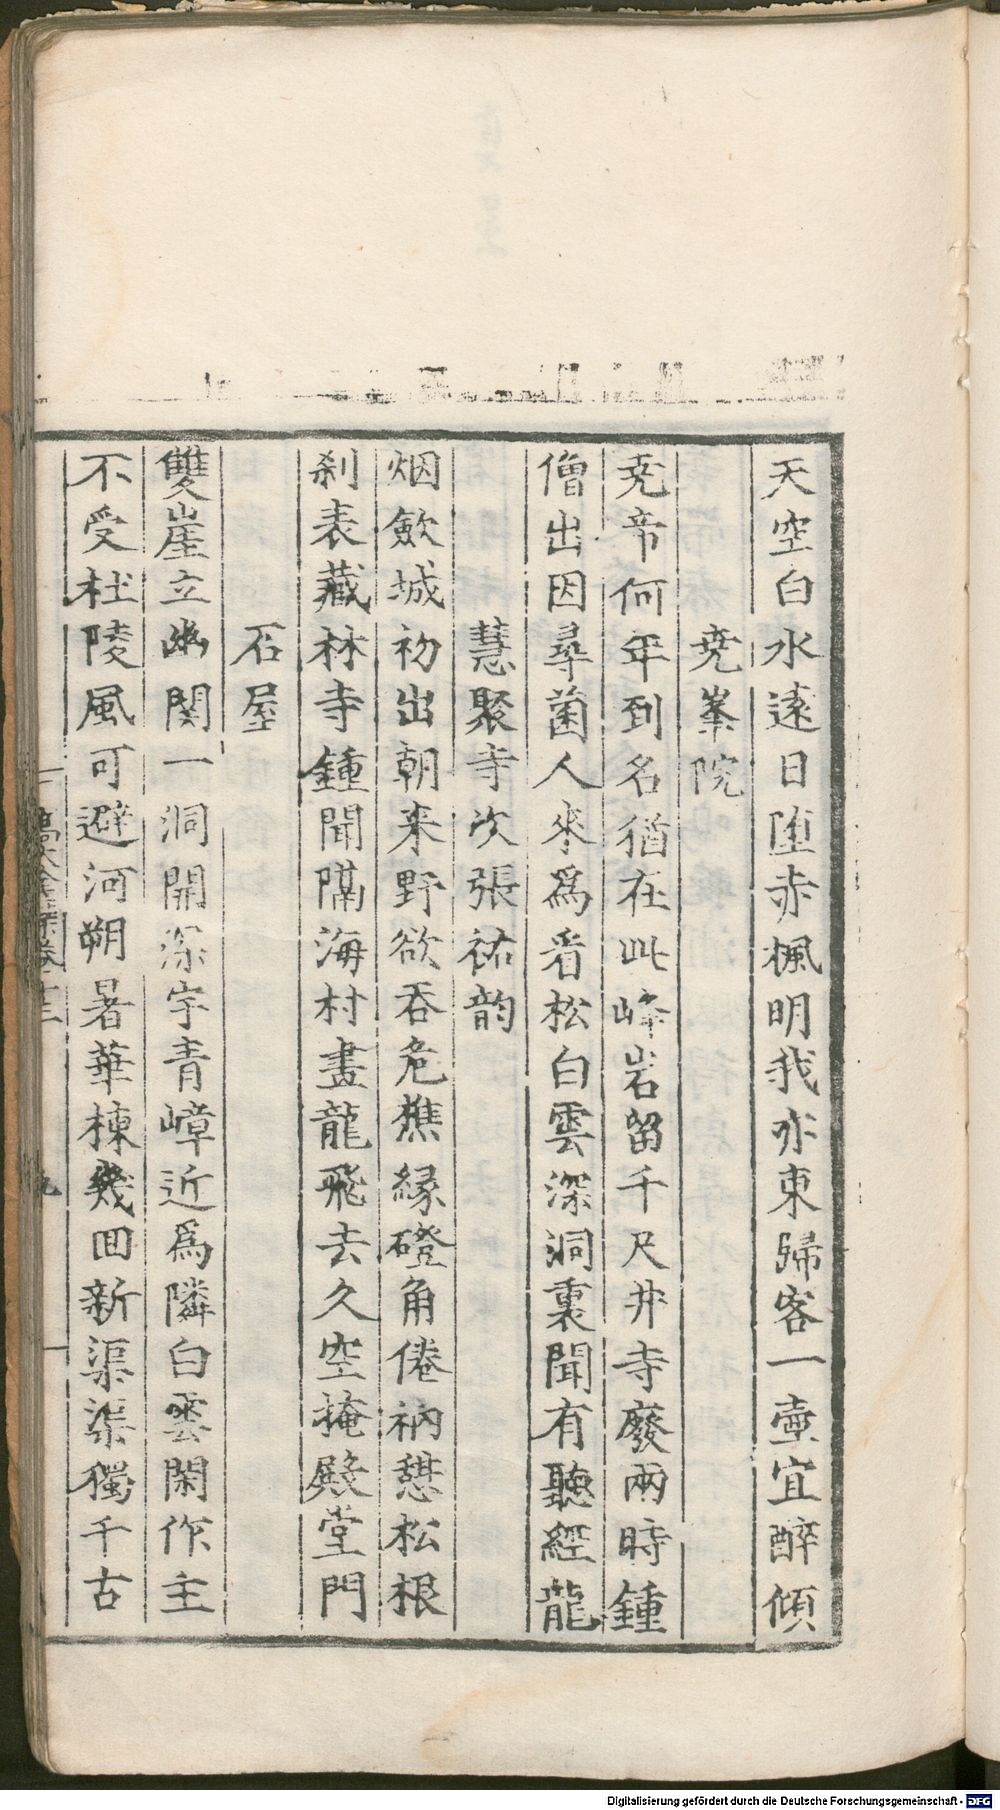 天空白水遠日墮赤楓明我亦東歸客一壺宜醉傾
尭峯院
尭帝何年到名猶在此峰岩留千尺井寺廢兩時鍾
僧出因尋菌人來爲看松白雲深洞裏聞有聽經龍
慧聚寺次張祐韵
烟歛城初出朝来野欲吞危樵縁磴角倦衲憇松根
刹表藏林寺鍾聞隔海村畫龍飛去久空掩殿堂門
石屋
雙崖立幽関一洞開深宇青嶂近爲隣白雲閑作主
不受杜陵風可避河朔暑華棟幾囬新渠渠獨千古
高太史大全集卷十三 九
Digitalisierung gefördert durch die Deutsche Forschungsgemeinschaft - DFG